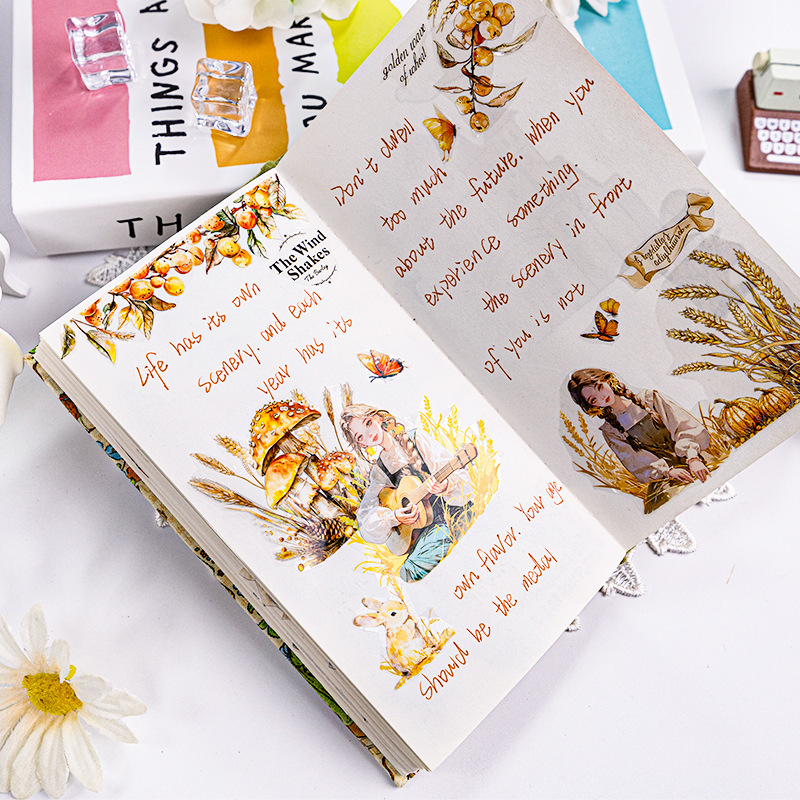 THINGS A
OU MAK
TH
The Wind
Shakes
The Barley
Life has its own
scenery, and each
year has its
own flavor. Your age
should be the medal
golden wave
of wheat
Don't dwell
too much
about the future. When you
experience something.
the scenery in front
of you is not